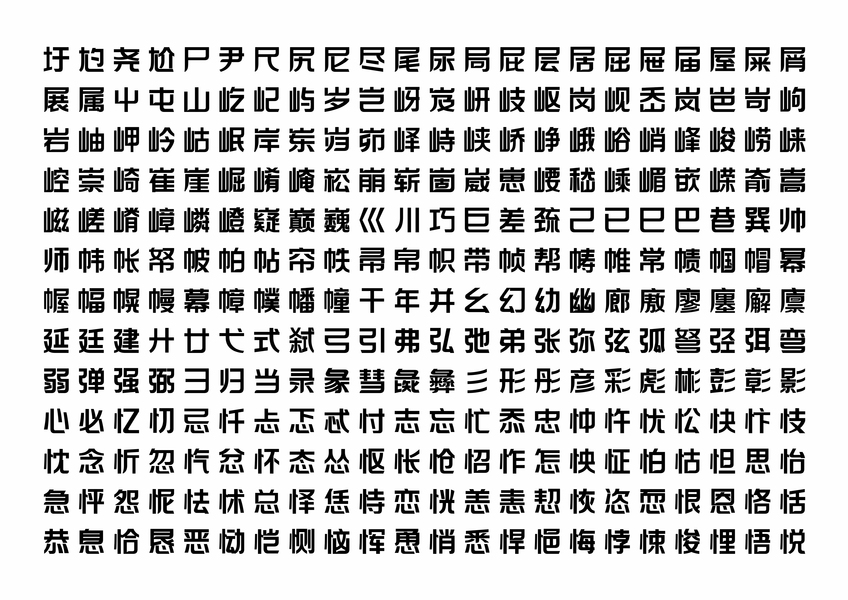 圩尥尧尬尸尹尺尻尼尽尾尿局屁层居屈屉届屋屎屑
展属屮屯山屹屺屿岁岂岈岌岍岐岖岗岘岙岚岜岢岣
岩岫岬岭岵岷岸岽岿峁峄峙峡峤峥峨峪峭峰峻崂崃
崆崇崎崔崖崛崤崦崧崩崭崮崴崽嵝嵇嵊嵋嵌嵘嵛嵩
嵫嵯嵴嶂嶙嶝嶷巅巍巛川巧巨差巯己已巳巴巷巽帅
师帏帐帑帔帕帖帘帙帚帛帜带帧帮帱帷常帻帼帽幂
幄幅幌幔幕幛幞幡幢干年并幺幻幼幽廊廒廖廛廨廪
延廷建廾廿弋式弑弓引弗弘弛弟张弥弦弧弩弪弭弯
弱弹强弼彐归当录彖彗彘彝彡形彤彦彩彪彬彭彰影
心必忆忉忌忏忐忑忒忖志忘忙忝忠忡忤忧忪快忭忮
忱念忻忽忾忿怀态怂怄怅怆怊怍怎怏怔怕怙怛思怡
急怦怨怩怯怵总怿恁恃恋恍恙恚恝恢恣恧恨恩恪恬
恭息恰恳恶恸恺恻恼恽恿悄悉悍悒悔悖悚悛悝悟悦